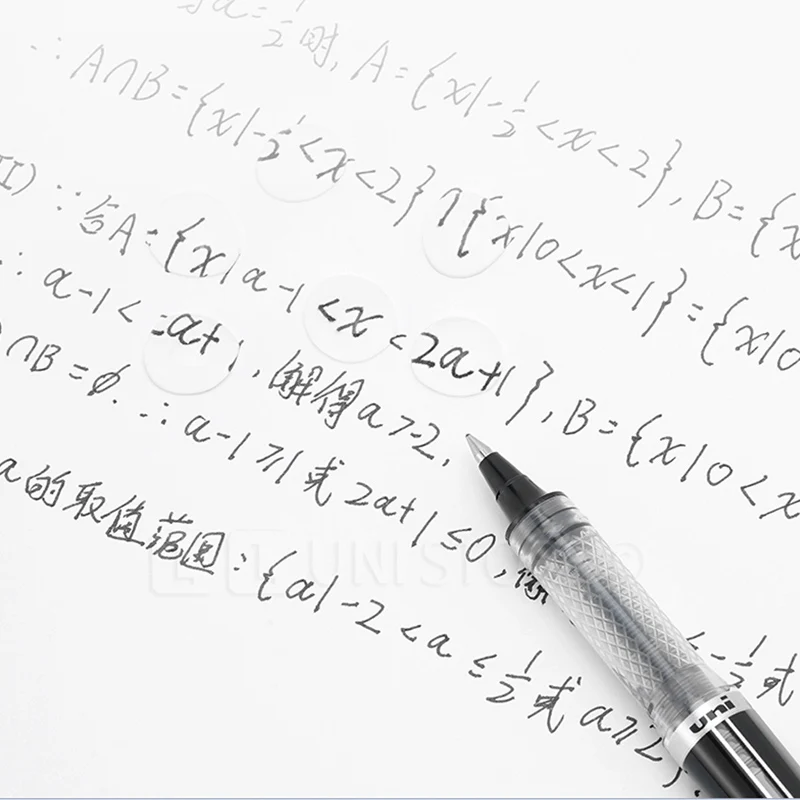 当a=1/2时, A={x|-1/2<x<2}, B={x
∴ A∩B={x|-1/2<x<2}∩{x|0<x<1}={x|0
II) ∵ 若A={x|a-1<x<2a+1}, B={x|0<x
∴ a-1<2a+1, 解得a>-2,
∩B=∅. ∴ a-1≥1或2a+1≤0,
≤-1/2或
a的取值范围:{a|-2<a≤1/2或a≥2}.
UNI
uni